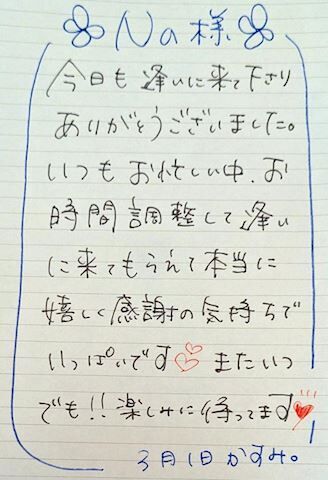 No.様
今日も逢いに来て下さり
ありがとうございました。
いつもお忙しい中、お
時間調整して逢い
に来てもらえて本当に
嬉しく感謝の気持ちで
いっぱいです♡ またいつ
でも!! 楽しみに待ってます♥
3月1日 かすみ。